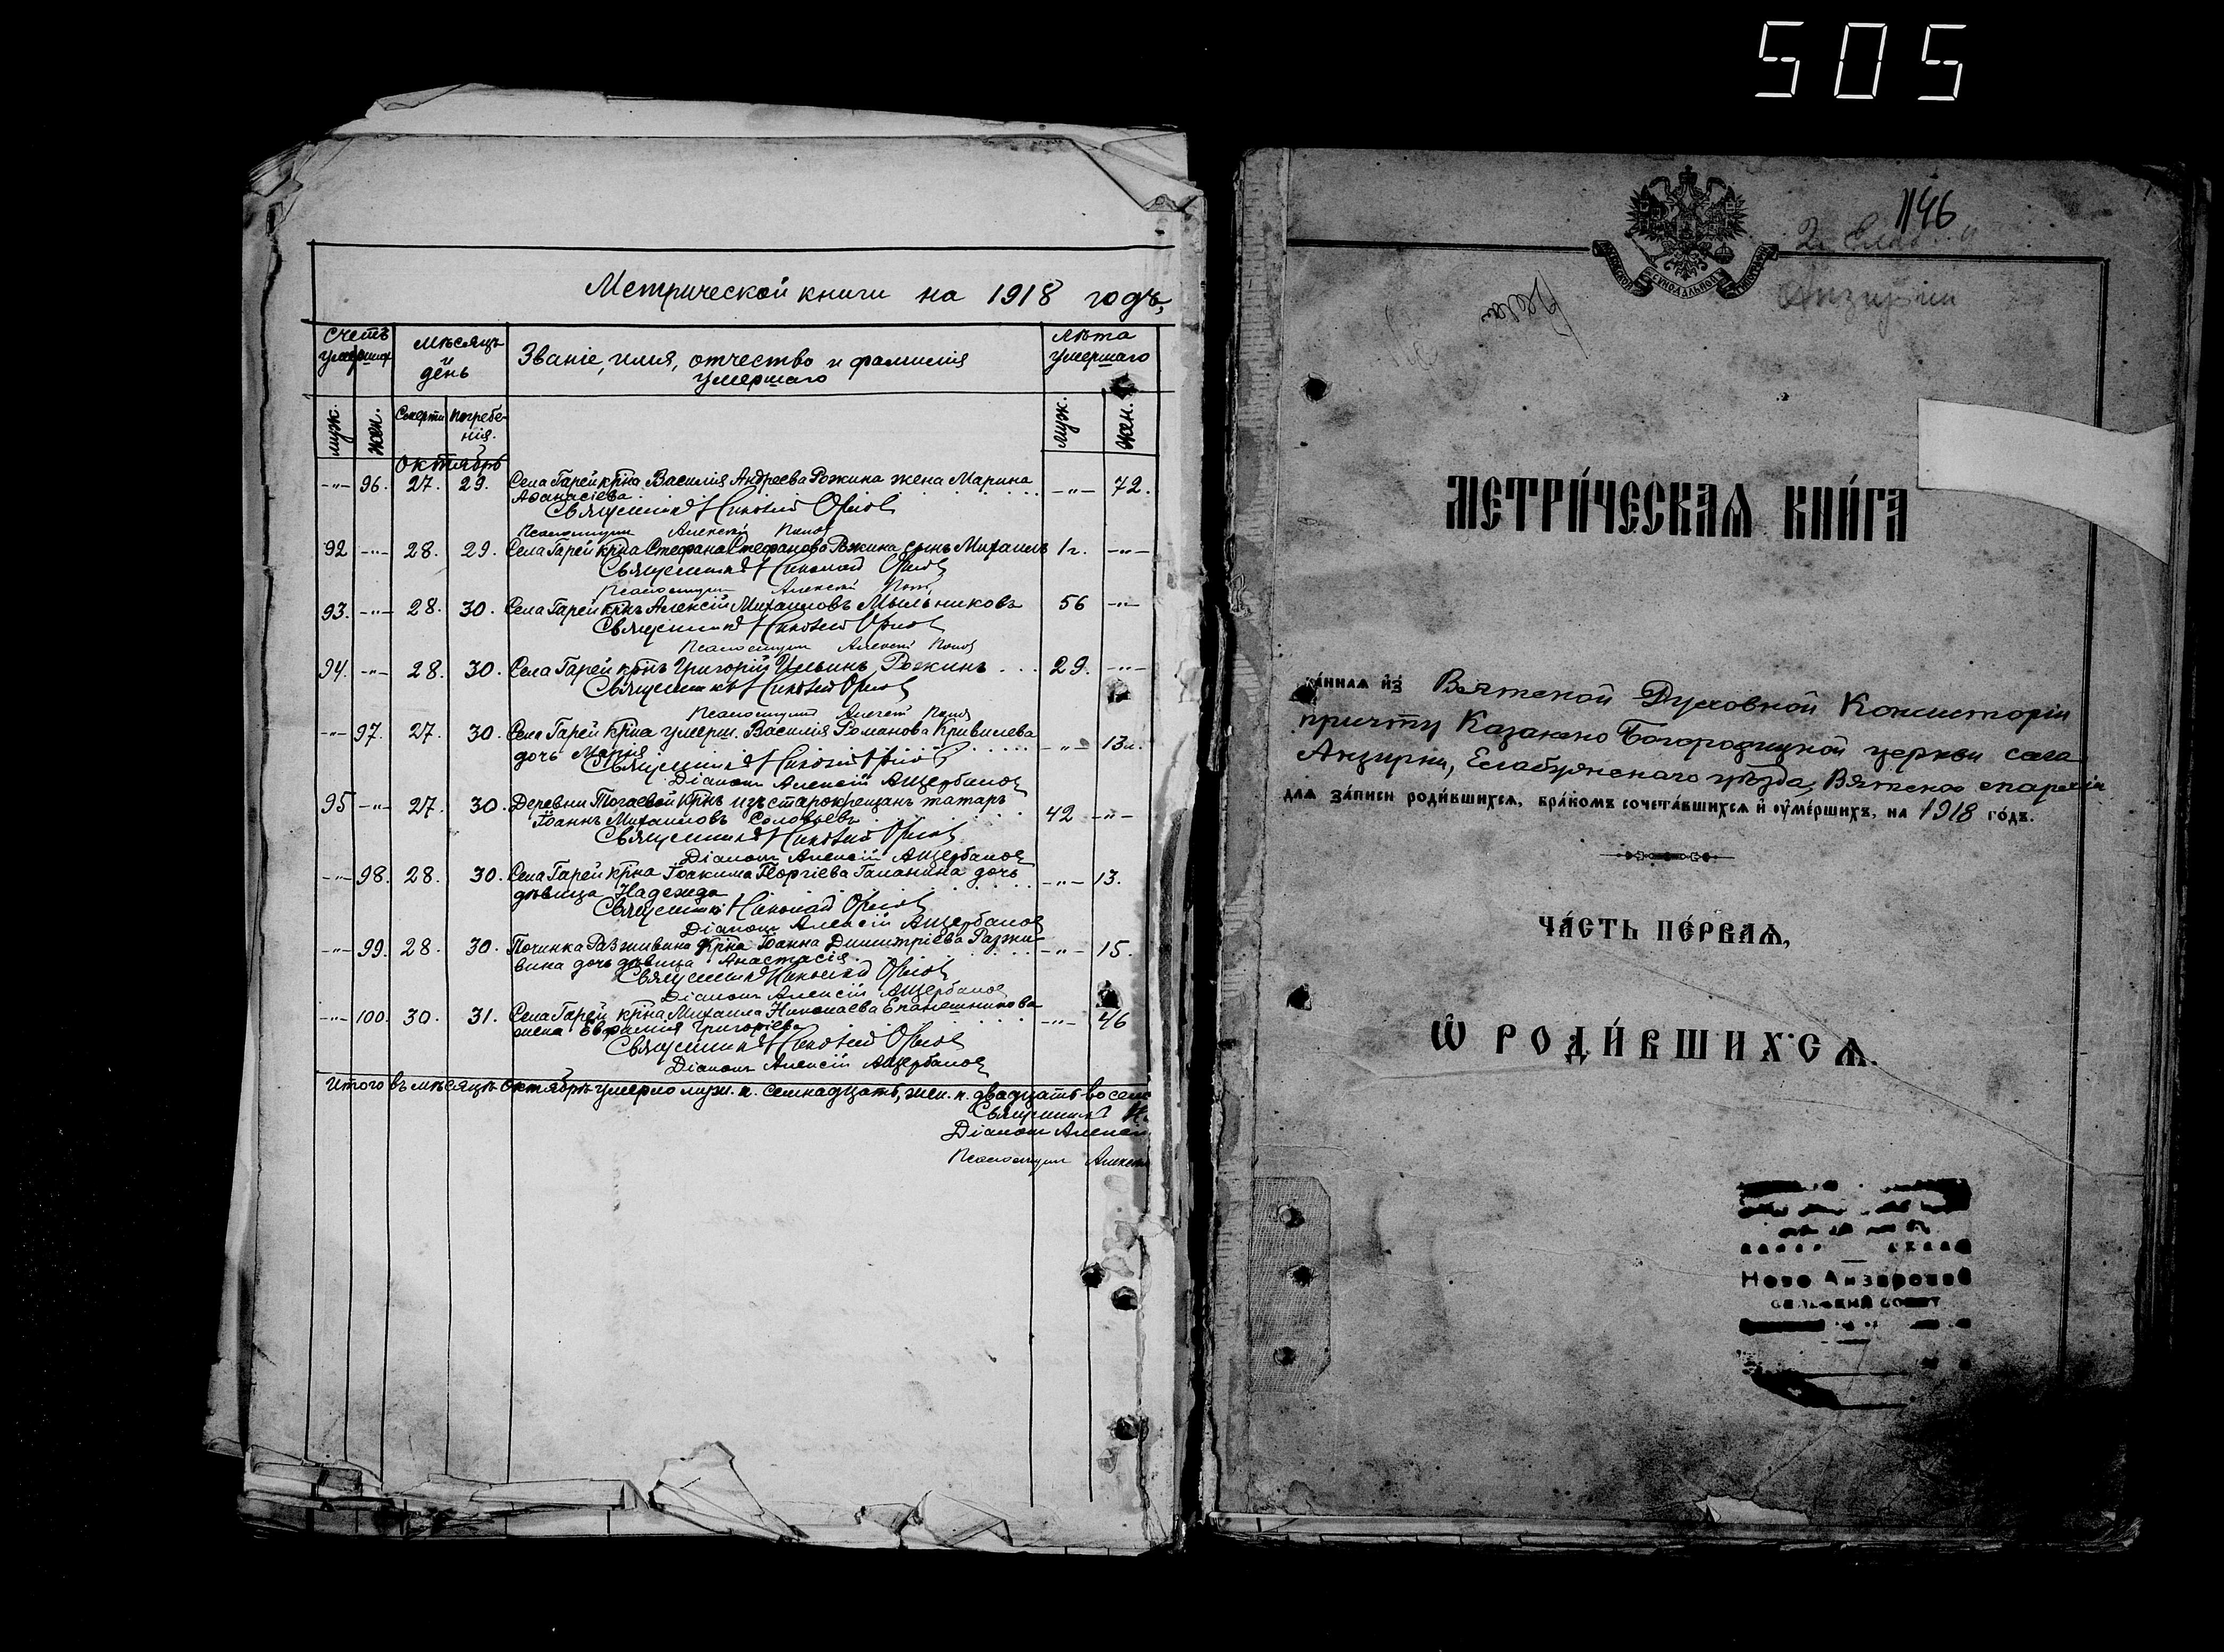 505
Метрической книги на 1918 годъ,
Счетъ умершихъ
мѣсяцъ и день
Званіе, имя, отчество и фамилія умершаго
лѣта умершаго
муж. жен. Смерти Погребенія. муж. жен.
октябрь
-"- 96. 27. 29. Села Гарей кр҃на Василія Андреева Рожина жена Марина -"- 72.
Аѳанасіева
Священникъ Николай Орлов
Псаломщик Алексей Попов
92 -"- 28. 29. Села Гарей кр҃на Стефана Стефанова Рожина сынъ Михаилъ 1г. -"-
Священникъ Николай Орлов
Псаломщик Алексей Попов
93. -"- 28. 30. Села Гарей кр҃нъ Алексій Михаиловъ Мыльниковъ 56 -"-
Священникъ Николай Орлов
Псаломщик Алексей Попов
94. -"- 28. 30. Села Гарей кр҃нъ Григорій Ильинъ Рожинъ 29. -"-
Священникъ Николай Орлов
Псаломщик Алексей Попов
-"- 97. 27. 30. Села Гарей кр҃на умерш. Василія Романова Кривилева -"-
дочь Марія
Священникъ Николай Орлов
Діаконъ Алексій Ащербанов
95 -"- 27. 30. Деревни Тогаевой кр҃нъ изъ старокрещенъ татаръ
Іоаннъ Михаиловъ Соловьевъ 42 -"-
Священникъ Николай Орлов
Діаконъ Алексій Ащербанов
-"- 98. 28. 30. Села Гарей кр҃на Іоакима Георгіева Галанина дочь -"- 13.
дѣвица Надежда
Священникъ Николай Орлов
Діаконъ Алексій Ащербанов
-"- 99. 28. 30. Починка Разживина кр҃на Іоанна Димитріева Разжи- -"- 15.
вина дочь дѣвица Анастасія
Священникъ Николай Орлов
Діаконъ Алексій Ащербанов
-"- 100. 30. 31. Села Гарей кр҃на Михаила Николаева Епанешникова -"- 46
жена Евфимія Григоріева
Священникъ Николай Орлов
Діаконъ Алексій Ащербанов
Итого въ мѣсяцѣ октябрѣ умерло муж. п. семнадцать, жен. п. двадцать восем
Священникъ Н.
Діаконъ Алексій
Псаломщик Алексей
1146
Анзирки
СѴНОДАЛЬНОЙ
МЕТРИ́ЧЕСКАѦ КНИ́ГА
да́ннаѧ и҆з̾ Вятской Духовной Консисторіи
причту Казанско Богородицкой церкви села
Анзирки, Елабужскаго уѣзда, Вятской епархіи
длѧ за́писи роди́вшихсѧ, бра́комъ сочета́вшихсѧ и҆ ᲂу҆ме́ршихъ, на 1918 го́дъ.
ЧА́СТЬ ПЕ́РВАѦ,
Ѽ РОДИ́ВШИХСѦ.
Ново Анзирский
СЕЛЬСКИЙ СОВЕТ